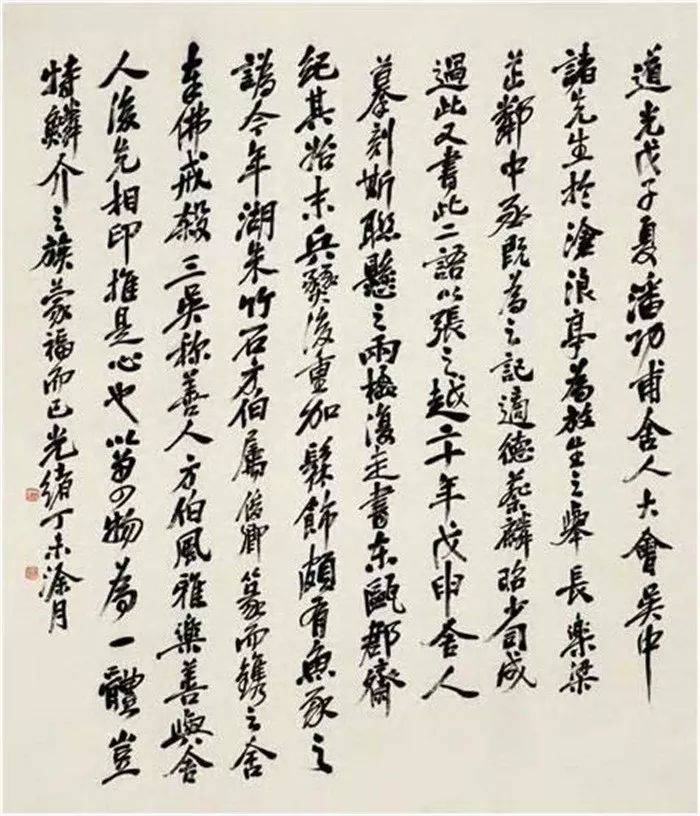 道光戊子夏潘功甫舍人大會吳中
諸先生於滄浪亭為放生之舉長樂梁
芷鄰中丞既為之記適德蔡麟昭少司成
過此又書此二語以張之越二十年戊申舍人
摹刻斯聯懸之兩楹復走書東甌郡齋
紀其始末兵燹後重加髹飾頗有魚豕之
譌今平湖朱竹石方伯屬俊卿篆而鐫之舍
奉佛戒殺三吳稱善人方伯風雅樂善與舍
人後先相印推是心也以萬物為一體豈
特鱗介之族蒙福而已光緒丁未涂月